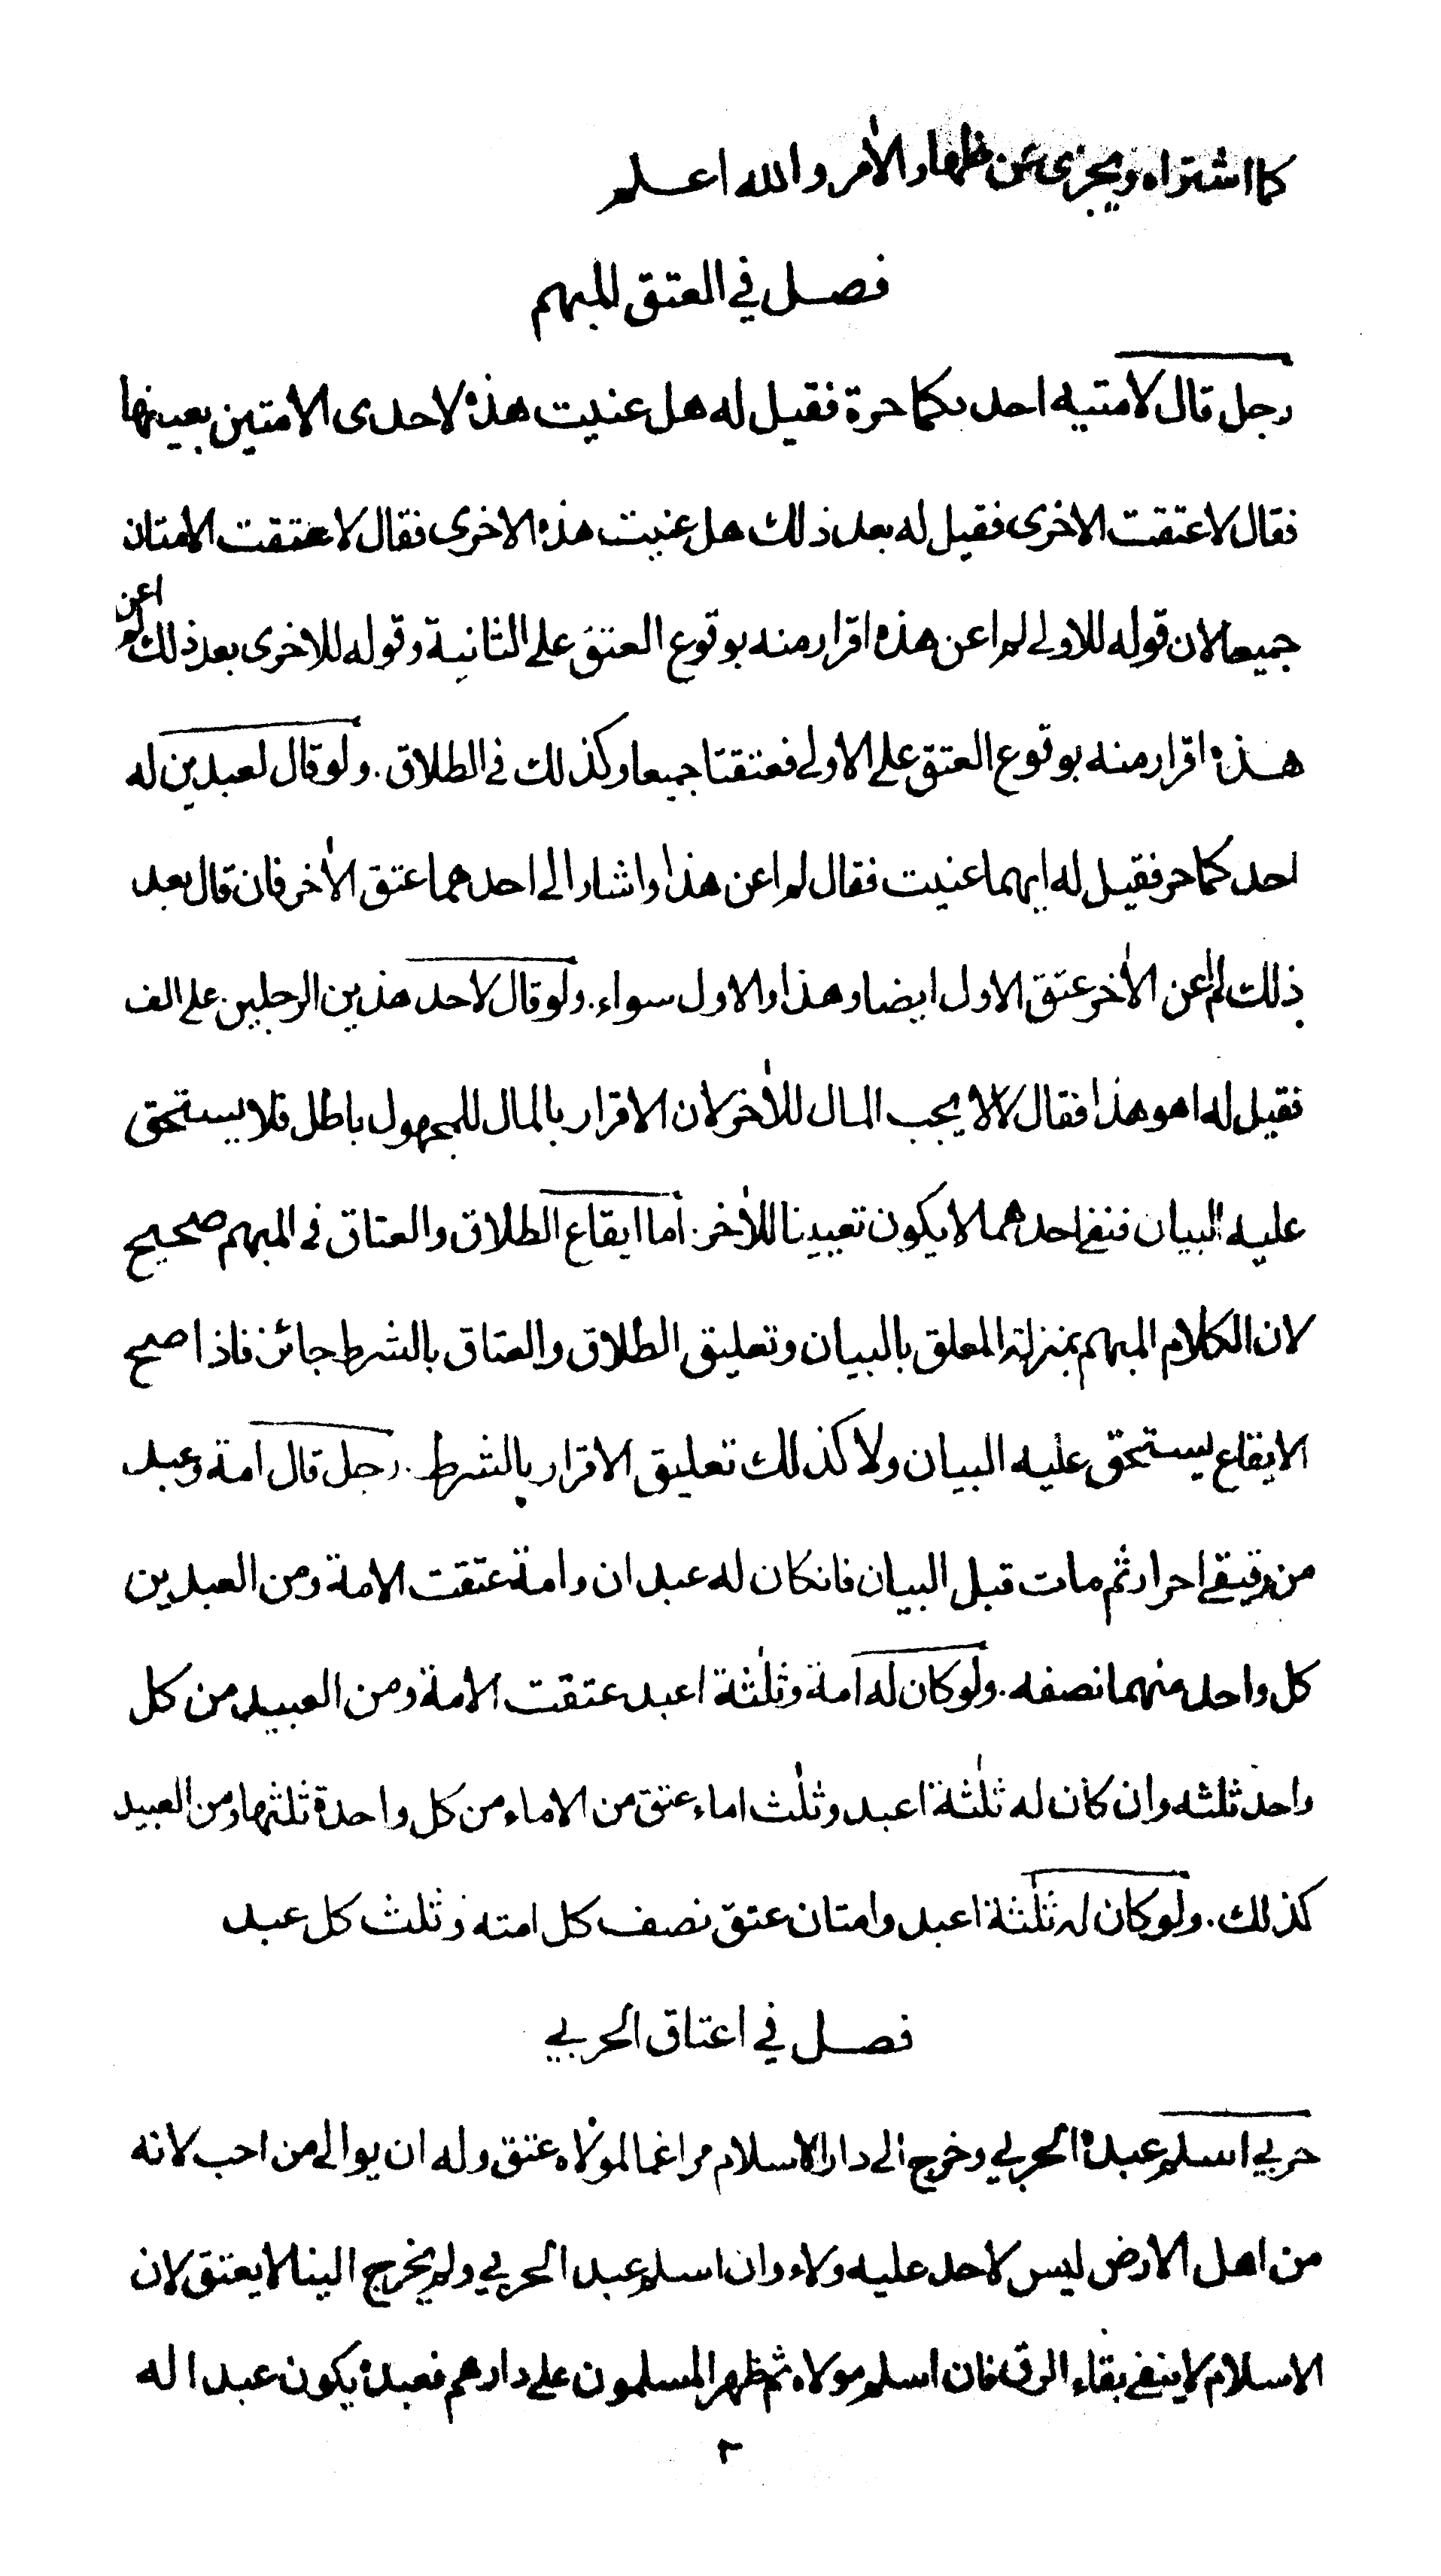 كما اشتراه ويجزى عن ظهار الأمر والله اعلم
فصل في العتق المبهم
رجل قال لامتيه احدىكما حرة فقيل له هل عنيت هذه لاحدى الامتين بعينها
فقال لا عتقت الاخرى فقيل له بعد ذلك هل عنيت هذه الاخرى فقال لا عتقت الامتان
جميعا لان قوله للاولى لم اعن هذه اقرار منه بوقوع العتق على الثانية وقوله للاخرى بعد ذلك لم اعن
هذه اقرار منه بوقوع العتق على الاولى فعتقتا جميعا وكذلك في الطلاق. ولو قال لعبدين له
احدكما حر فقيل له ايهما عنيت فقال لم اعن هذا واشار الى احدهما عتق الأخر فان قال بعد
ذلك لم اعن الأخر عتق الاول ايضا وهذا والاول سواء. ولو قال لاحد هذين الرجلين على الف
فقيل له اهو هذا فقال لا لا يجب المال للأخر لان الاقرار بالمال للمجهول باطل فلا يستحق
عليه البيان فنفى احدهما لا يكون تعيينا للأخر. أما ايقاع الطلاق والعتاق في المبهم صحيح
لان الكلام المبهم بمنزلة المعلق بالبيان وتعليق الطلاق والعتاق بالشرط جائز فاذا صح
الايقاع يستحق عليه البيان ولا كذلك تعليق الاقرار بالشرط. رجل قال امة وعبد
من رقيقى احرار ثم مات قبل البيان فانكان له عبدان وامة عتقت الامة ومن العبدين
كل واحد منهما نصفه. ولو كان له امة وثلثة اعبد عتقت الامة ومن العبيد من كل
واحد ثلثه وان كان له ثلثة اعبد وثلث اماء عتق من الاماء من كل واحدة ثلثها ومن العبيد
كذلك. ولو كان له ثلثة اعبد وامتان عتق نصف كل امته وثلث كل عبد
فصل في اعتاق الحربي
حربي اسلم عبده الحربي وخرج الى دار الاسلام مراغما لمولاه عتق وله ان يوالى من احب لانه
من اهل الارض ليس لاحد عليه ولاء وان اسلم عبد الحربي ولم يخرج الينا لا يعتق لان
الاسلام لا ينفى بقاء الرق فان اسلم مولاه ثم ظهر المسلمون على دارهم فعبده يكون عبدا له
٣